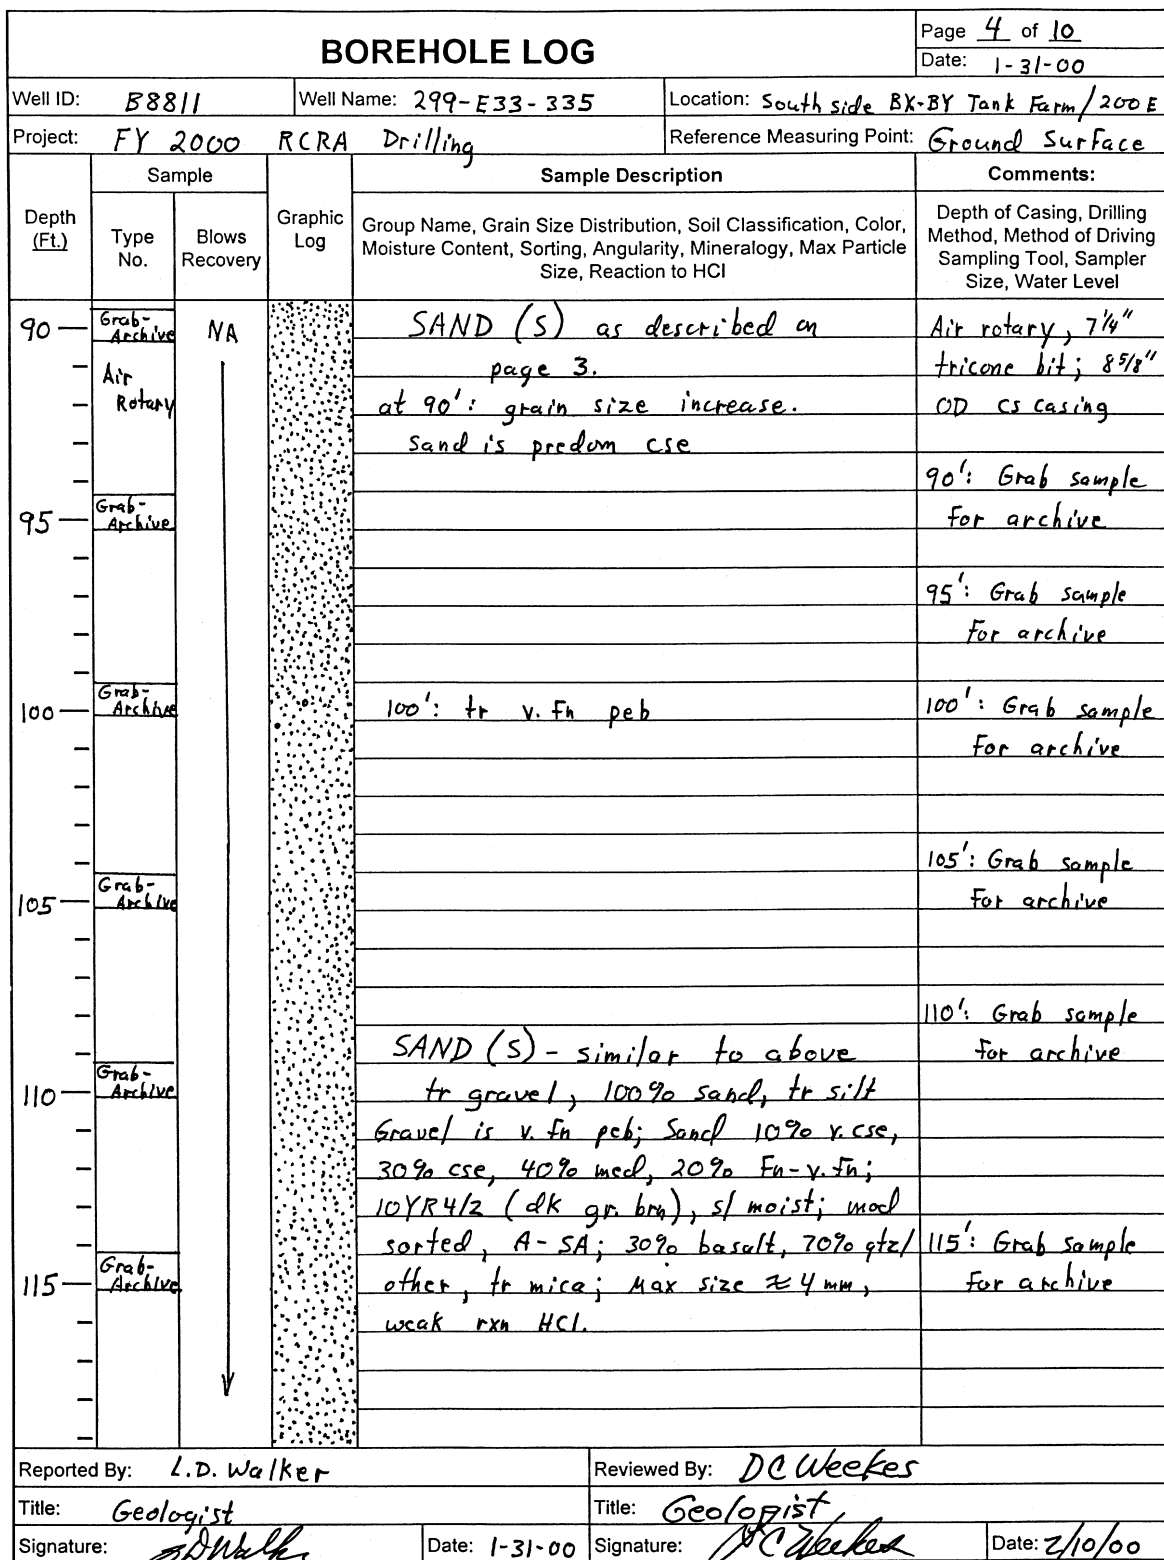 BOREHOLE LOG
Page 4 of 10
Date: 1-31-00
Well ID: B8811
Well Name: 299-E33-335
Location: South side BX-BY Tank Farm/200 E
Project: FY 2000 RCRA Drilling
Reference Measuring Point: Ground Surface
Depth (Ft.)
Sample
Type No.
Blows Recovery
Graphic Log
Sample Description
Group Name, Grain Size Distribution, Soil Classification, Color,
Moisture Content, Sorting, Angularity, Mineralogy, Max Particle
Size, Reaction to HCl
Comments:
Depth of Casing, Drilling
Method, Method of Driving
Sampling Tool, Sampler
Size, Water Level
90
Grab-
Archive
NA
SAND (S) as described on
Air rotary, 7 1/4"
Air
Rotary
page 3.
tricone bit; 8 5/8"
at 90': grain size increase.
OD cs casing
Sand is predom cse
90': Grab sample
for archive
95
Grab-
Archive
95': Grab sample
for archive
100
Grab-
Archive
100': tr v. fn peb
100': Grab sample
for archive
105
Grab-
Archive
105': Grab sample
for archive
110': Grab sample
for archive
110
Grab-
Archive
SAND (S) - similar to above
tr gravel, 100% sand, tr silt
Gravel is v. fn peb; Sand 10% v. cse,
30% cse, 40% med, 20% Fn-v. fn;
10YR 4/2 (dk gr. brn), sl moist; mod
sorted, A-SA; 30% basalt, 70% qtz/
other, tr mica; Max size ≈ 4 mm,
weak rxn HCl.
115
Grab-
Archive
115': Grab sample
for archive
Reported By: L.D. Walker
Reviewed By: DC Weekes
Title: Geologist
Title: Geologist
Signature: LDWalker
Date: 1-31-00
Signature: DC Weekes
Date: 2/10/00